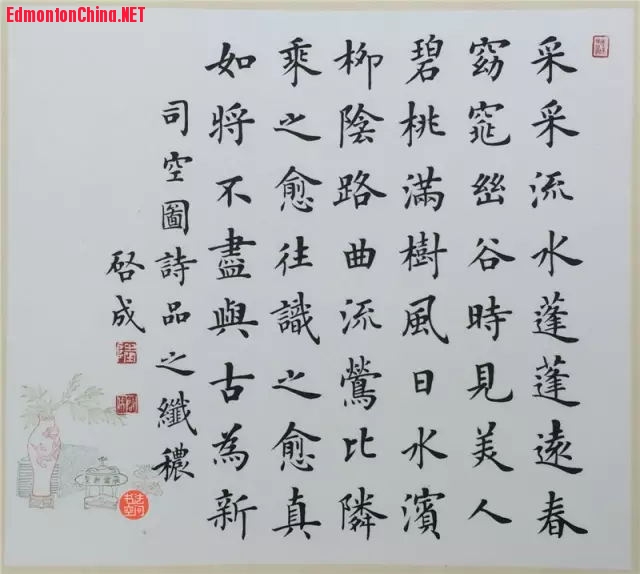 EdmontonChina.NET
采采流水蓬蓬遠春
窈窕幽谷時見美人
碧桃滿樹風日水濱
柳陰路曲流鶯比隣
乘之愈往識之愈真
如將不盡與古為新
司空圖詩品之纖穠
啓成